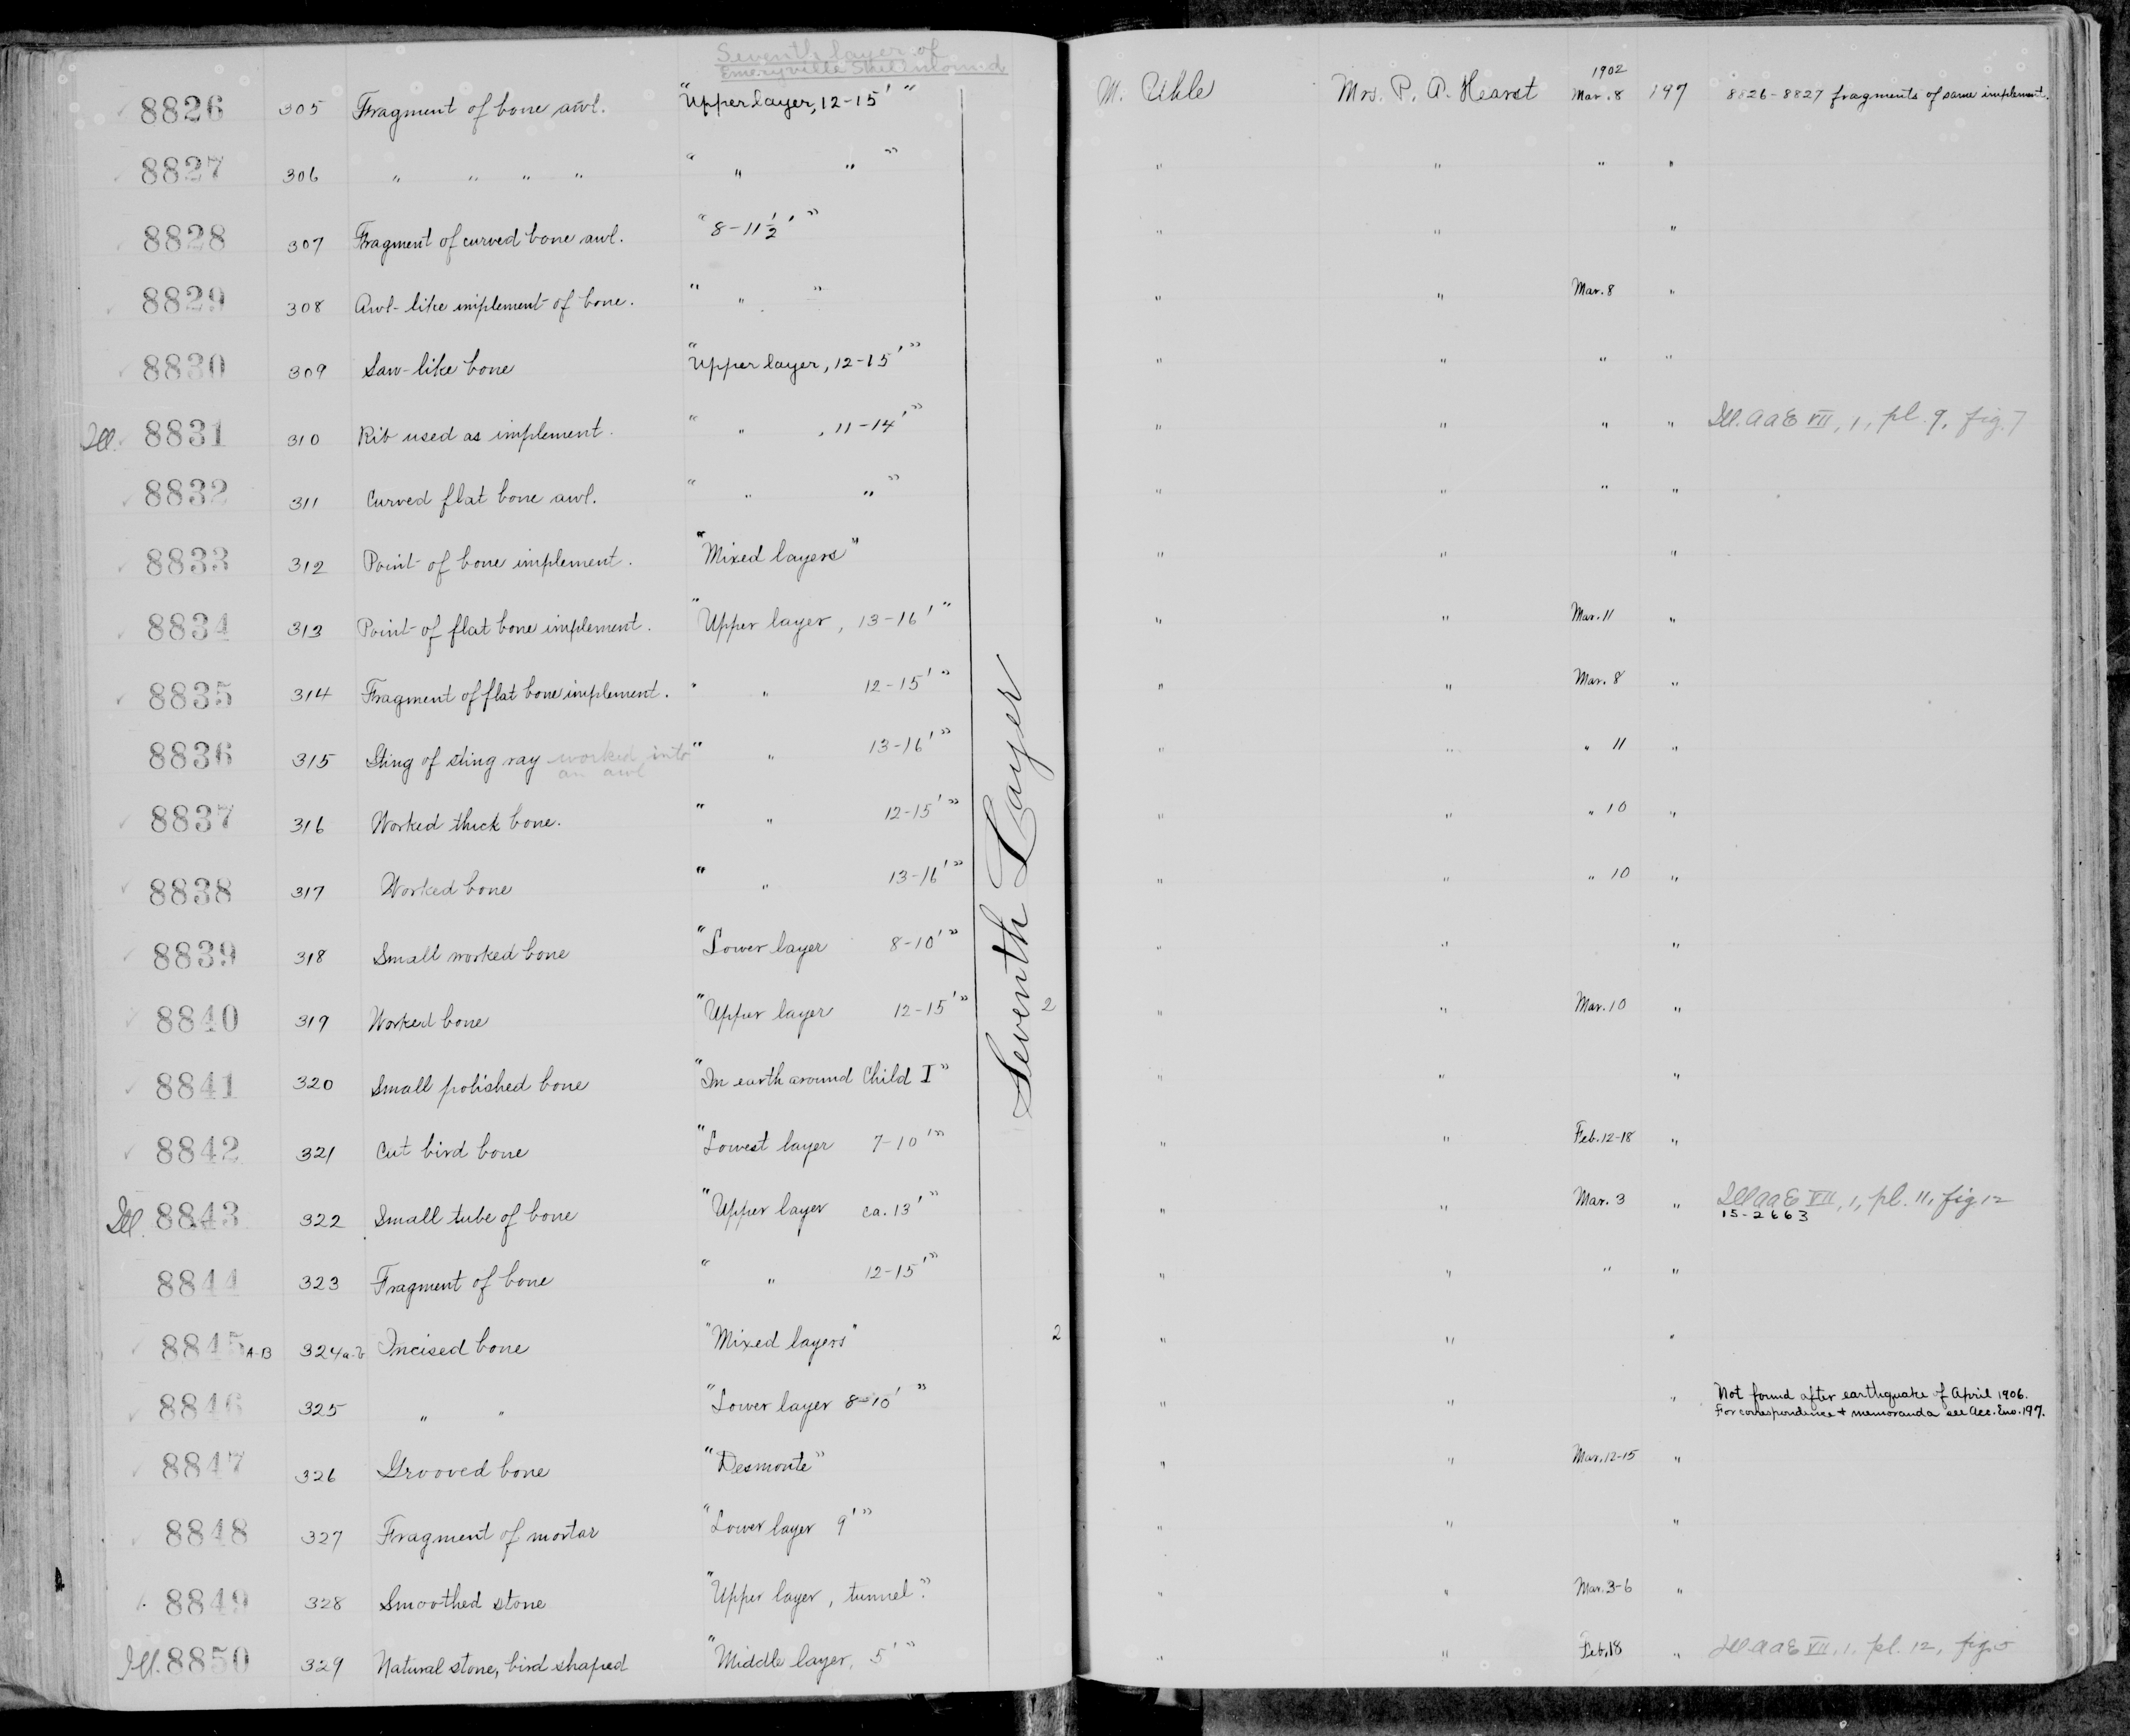 Seventh layer of
Emeryville Shellmound
8826 305 Fragment of bone awl. "Upper layer, 12-15'" M. Uhle Mrs. P. A. Hearst 1902 Mar. 8 197 8826-8827 fragments of same implement.
8827 306 " " " " " " " " " " " "
8828 307 Fragment of curved bone awl. "8-11½'" " " "
8829 308 Awl-like implement of bone. " " " " " Mar. 8 "
8830 309 Saw-like bone "Upper layer, 12-15'" " " " "
Ill. 8831 310 Rib used as implement. " " , 11-14'" " " " " Ill. AAE VII, 1, pl. 9, fig. 7
8832 311 Curved flat bone awl. " " " " " " " "
8833 312 Point of bone implement. "Mixed layers" " " "
8834 313 Point of flat bone implement. "Upper layer, 13-16'" " " Mar. 11 "
8835 314 Fragment of flat bone implement. " " 12-15'" " " Mar. 8 "
8836 315 Sting of sting ray worked into " " 13-16'" " " " 11 "
an awl
8837 316 Worked thick bone. " " 12-15'" " " " 10 "
8838 317 Worked bone " " 13-16'" " " " 10 "
8839 318 Small worked bone "Lower layer 8-10'" " " "
8840 319 Worked bone "Upper layer 12-15'" 2 " " Mar. 10 "
8841 320 Small polished bone "In earth around Child I" " " "
8842 321 Cut bird bone "Lowest layer 7-10'" " " Feb. 12-18 "
Ill. 8843 322 Small tube of bone "Upper layer ca. 13'" " " Mar. 3 " Ill AAE VII, 1, pl. 11, fig 12
15-2663
8844 323 Fragment of bone " " 12-15'" " " " "
8845 A-B 324a-b Incised bone "Mixed layers" 2 " " "
8846 325 " " "Lower layer 8-10'" " " " Not found after earthquake of April 1906.
For correspondence + memoranda see Acc. Env. 197.
8847 326 Grooved bone "Desmonte" " " Mar. 12-15 "
8848 327 Fragment of mortar "Lower layer 9'" " " "
8849 328 Smoothed stone "Upper layer, tunnel." " " Mar. 3-6 "
Ill. 8850 329 Natural stone, bird shaped "Middle layer, 5'" " " Feb. 18 " Ill AAE VII, 1, pl. 12, fig. 5
Seventh Layer